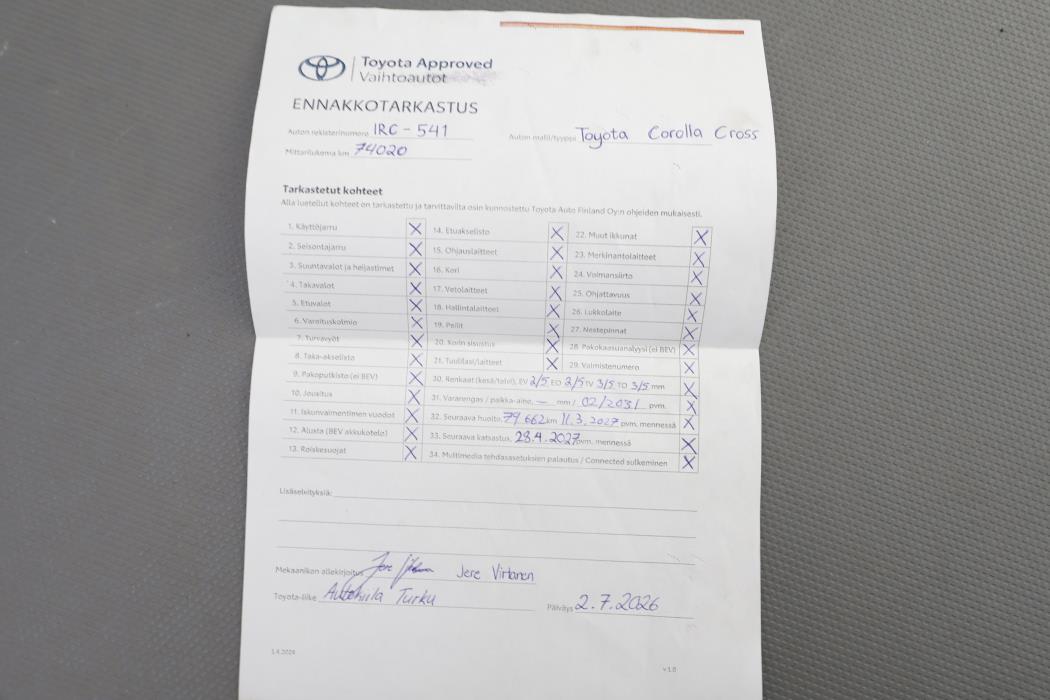 Toyota Approved
Vaihtoautot
ENNAKKOTARKASTUS
Auton rekisterinumero IRC-541 Auton malli/tyyppi Toyota Corolla Cross
Mittarilukema km 74020
Tarkastetut kohteet
Alla luetellut kohteet on tarkastettu ja tarvittavilta osin kunnostettu Toyota Auto Finland Oy:n ohjeiden mukaisesti.
1. Käyttöjarru X 14. Etuakselisto X 22. Muut ikkunat X
2. Seisontajarru X 15. Ohjauslaitteet X 23. Merkinantolaitteet X
3. Suuntavalot ja heijastimet X 16. Kori X 24. Voimansiirto X
4. Takavalot X 17. Vetolaitteet X 25. Ohjattavuus X
5. Etuvalot X 18. Hallintalaitteet X 26. Lukkolaite X
6. Varoituskolmio X 19. Peilit X 27. Nestepinnat X
7. Turvavyöt X 20. Korin sisustus X 28. Pakokaasuanalyysi (ei BEV) X
8. Taka-akselisto X 21. Tuulilasi/laitteet X 29. Valmistenumero X
9. Pakoputkisto (ei BEV) X 30. Renkaat (kesä/talvi), EV 2/5 EO 2/5 TV 3/5 TO 3/5 mm X
10. Jousitus X 31. Vararengas / paikka-aine, — mm / 02/2031 pvm. X
11. Iskunvaimentimien vuodot X 32. Seuraava huolto, 79 662 km 11.3.2027 pvm. mennessä X
12. Alusta (BEV akkukotelo) X 33. Seuraava katsastus, 28.4.2027 pvm. mennessä X
13. Roiskesuojat X 34. Multimedia tehdasasetuksien palautus / Connected sulkeminen X
Lisäselvityksiä:
Mekaanikon allekirjoitus Jere Virtanen
Toyota-liike Autohiila Turku Päiväys 2.7.2026
1.4.2024 v 1.0